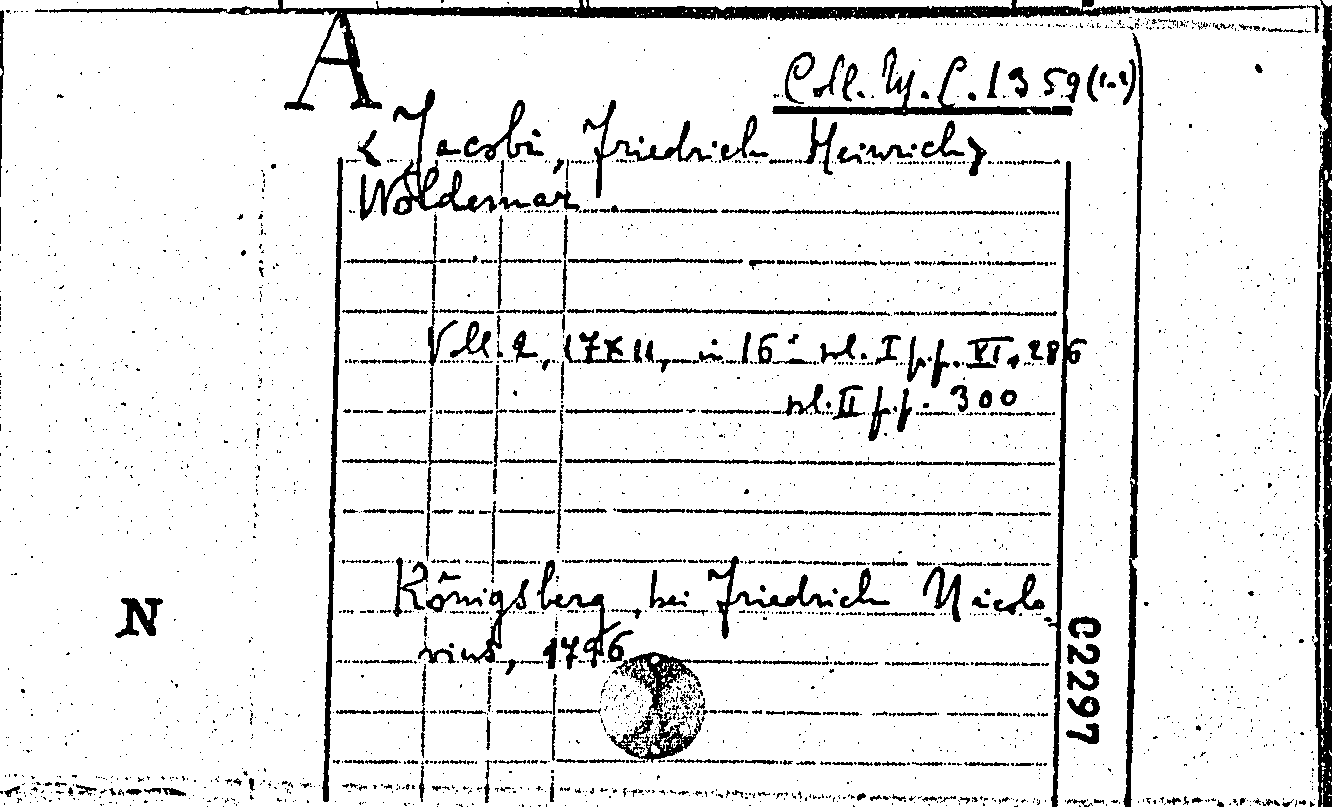 A
Coll. It. C. 1359 (1-2)
< Jacobi, Friedrich Heinrich >
Woldemar.
Voll. 2, 17x11, in 16° vol. I pp. VI, 286
vol. II pp. 300
Königsberg, bei Friedrich Nicolo-
vius, 1796
N
C2297